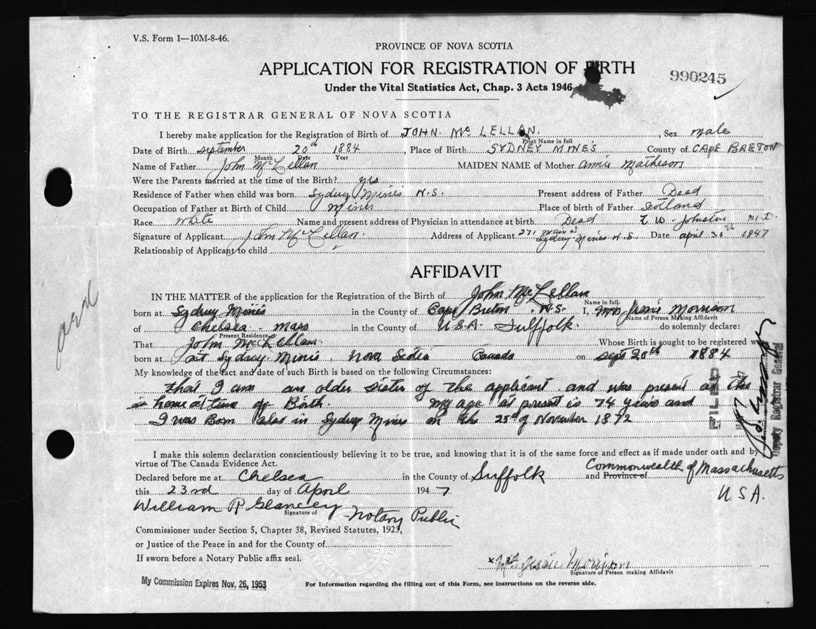 V.S. Form 1—10M-8-46.
PROVINCE OF NOVA SCOTIA
APPLICATION FOR REGISTRATION OF BIRTH
990245
Under the Vital Statistics Act, Chap. 3 Acts 1946
TO THE REGISTRAR GENERAL OF NOVA SCOTIA
I hereby make application for the Registration of Birth of JOHN. Mc LELLAN. , Sex male
Print Name in full
Date of Birth September 20th 1884 Place of Birth SYDNEY MINES County of CAPE BRETON
Month Date Year
Name of Father John McLellan MAIDEN NAME of Mother Annie Matheson
Were the Parents married at the time of Birth? yes
Residence of Father when child was born Sydney Mines N.S. Present address of Father Dead
Occupation of Father at Birth of Child Miner Place of birth of Father Scotland
Race White Name and present address of Physician in attendance at birth Dead Johnston M.D.
Signature of Applicant John McLellan. Address of Applicant 271 Main St Sydney Mines N.S. Date April 30th 1947
Relationship of Applicant to child
AFFIDAVIT
IN THE MATTER of the application for the Registration of Birth of John McLellan
Name in full
born at Sydney Mines in the County of Cape Breton N.S. I, Mrs Jessie Morrison
Name of Person Making Affidavit
of Chelsea - Mass in the County of U.S.A. Suffolk. do solemnly declare:
Present Residence
That John McLellan Whose Birth is sought to be registered was
born at Sydney Mines, Nova Scotia Canada on Sept 20th 1884
My knowledge of the fact and date of such Birth is Based on the following Circumstances:
that I am an older sister of the applicant and was present at the
home at time of Birth. My age at present is 74 years and
I was Born also in Sydney Mines on the 25 of November 1872
FILED
Deputy Registrar General
I make this solemn declaration conscientiously believing it to be true, and knowing that it is of the same force and effect as if made under oath and by
virtue of The Canada Evidence Act.
Declared before me at Chelsea in the County of Suffolk and Province of Commonwealth of Massachusetts
this 23rd day of April 1947 U.S.A.
William P. Glancey
Signature of Notary Public
Commissioner under Section 5, Chapter 38, Revised Statutes, 1923,
or Justice of the Peace in and for the County of
If sworn before a Notary Public affix seal.
x Mrs Jessie Morrison
Signature of Person making Affidavit
My Commission Expires Nov. 26, 1953
For Information regarding the filling out of this Form, see instructions on the reverse side.